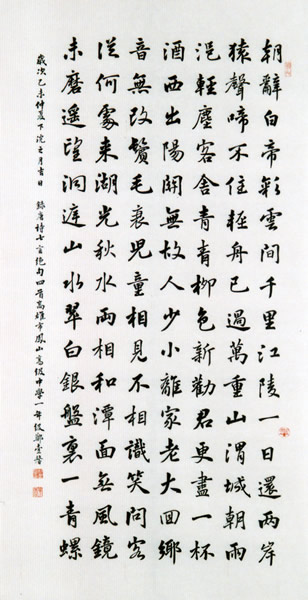 朝辭白帝彩雲間千里江陵一日還兩岸
猿聲啼不住輕舟已過萬重山渭城朝雨
浥輕塵客舍青青柳色新勸君更盡一杯
酒西出陽關無故人少小離家老大回鄉
音無改鬢毛衰兒童相見不相識笑問客
從何處來湖光秋水兩相和潭面無風鏡
未磨遙望洞庭山水翠白銀盤裏一青螺
歲次乙未仲夏下浣七月吉日 錄唐詩七言絕句四首高雄市鳳山高級中學一年級鄭